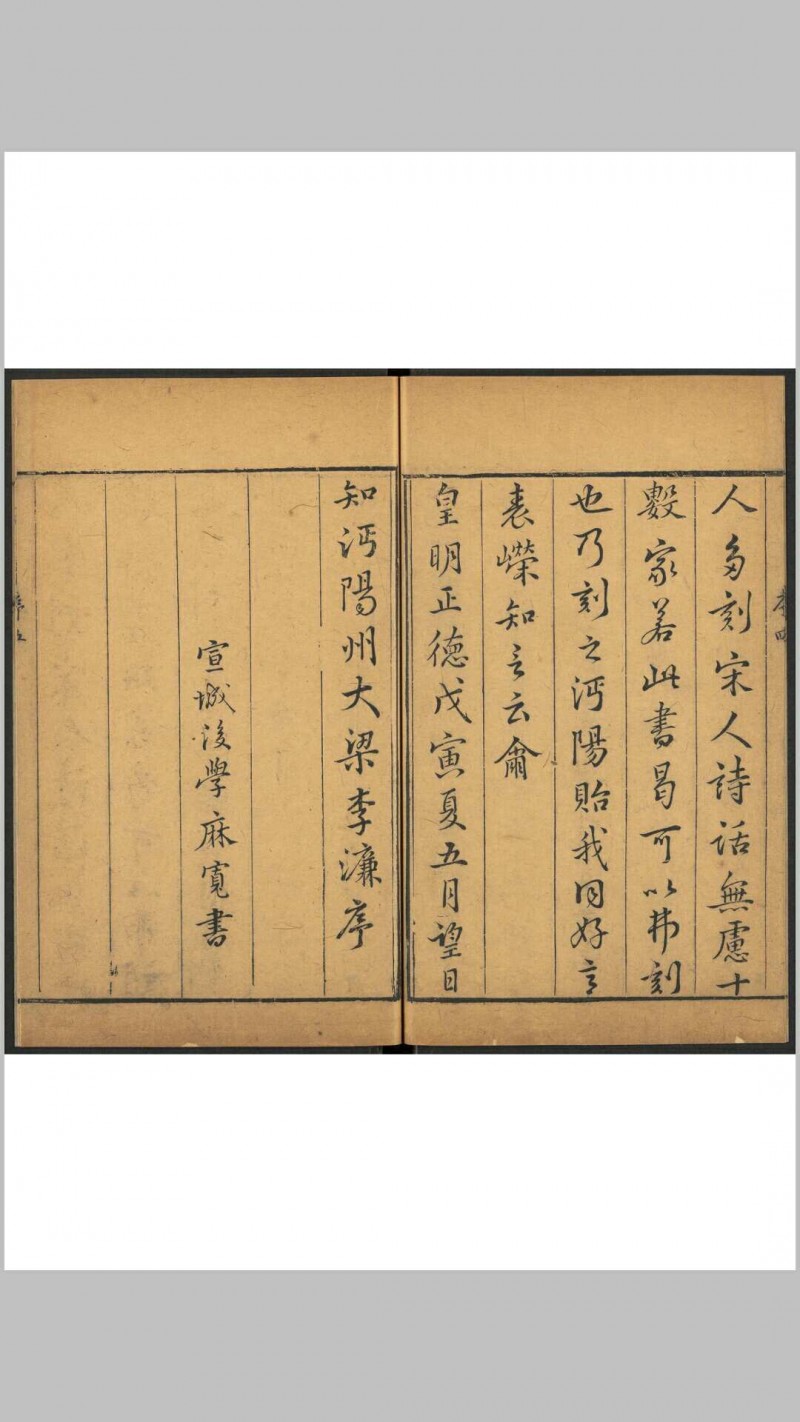 人多刻宋人詩話無慮十
數家若此書曷可以弗刻
也乃刻之沔陽貽我同好
表嶸知言云爾
皇明正德戊寅夏五月望日
知沔陽州大梁李濂序
宣城後學麻寬書
序四
序五